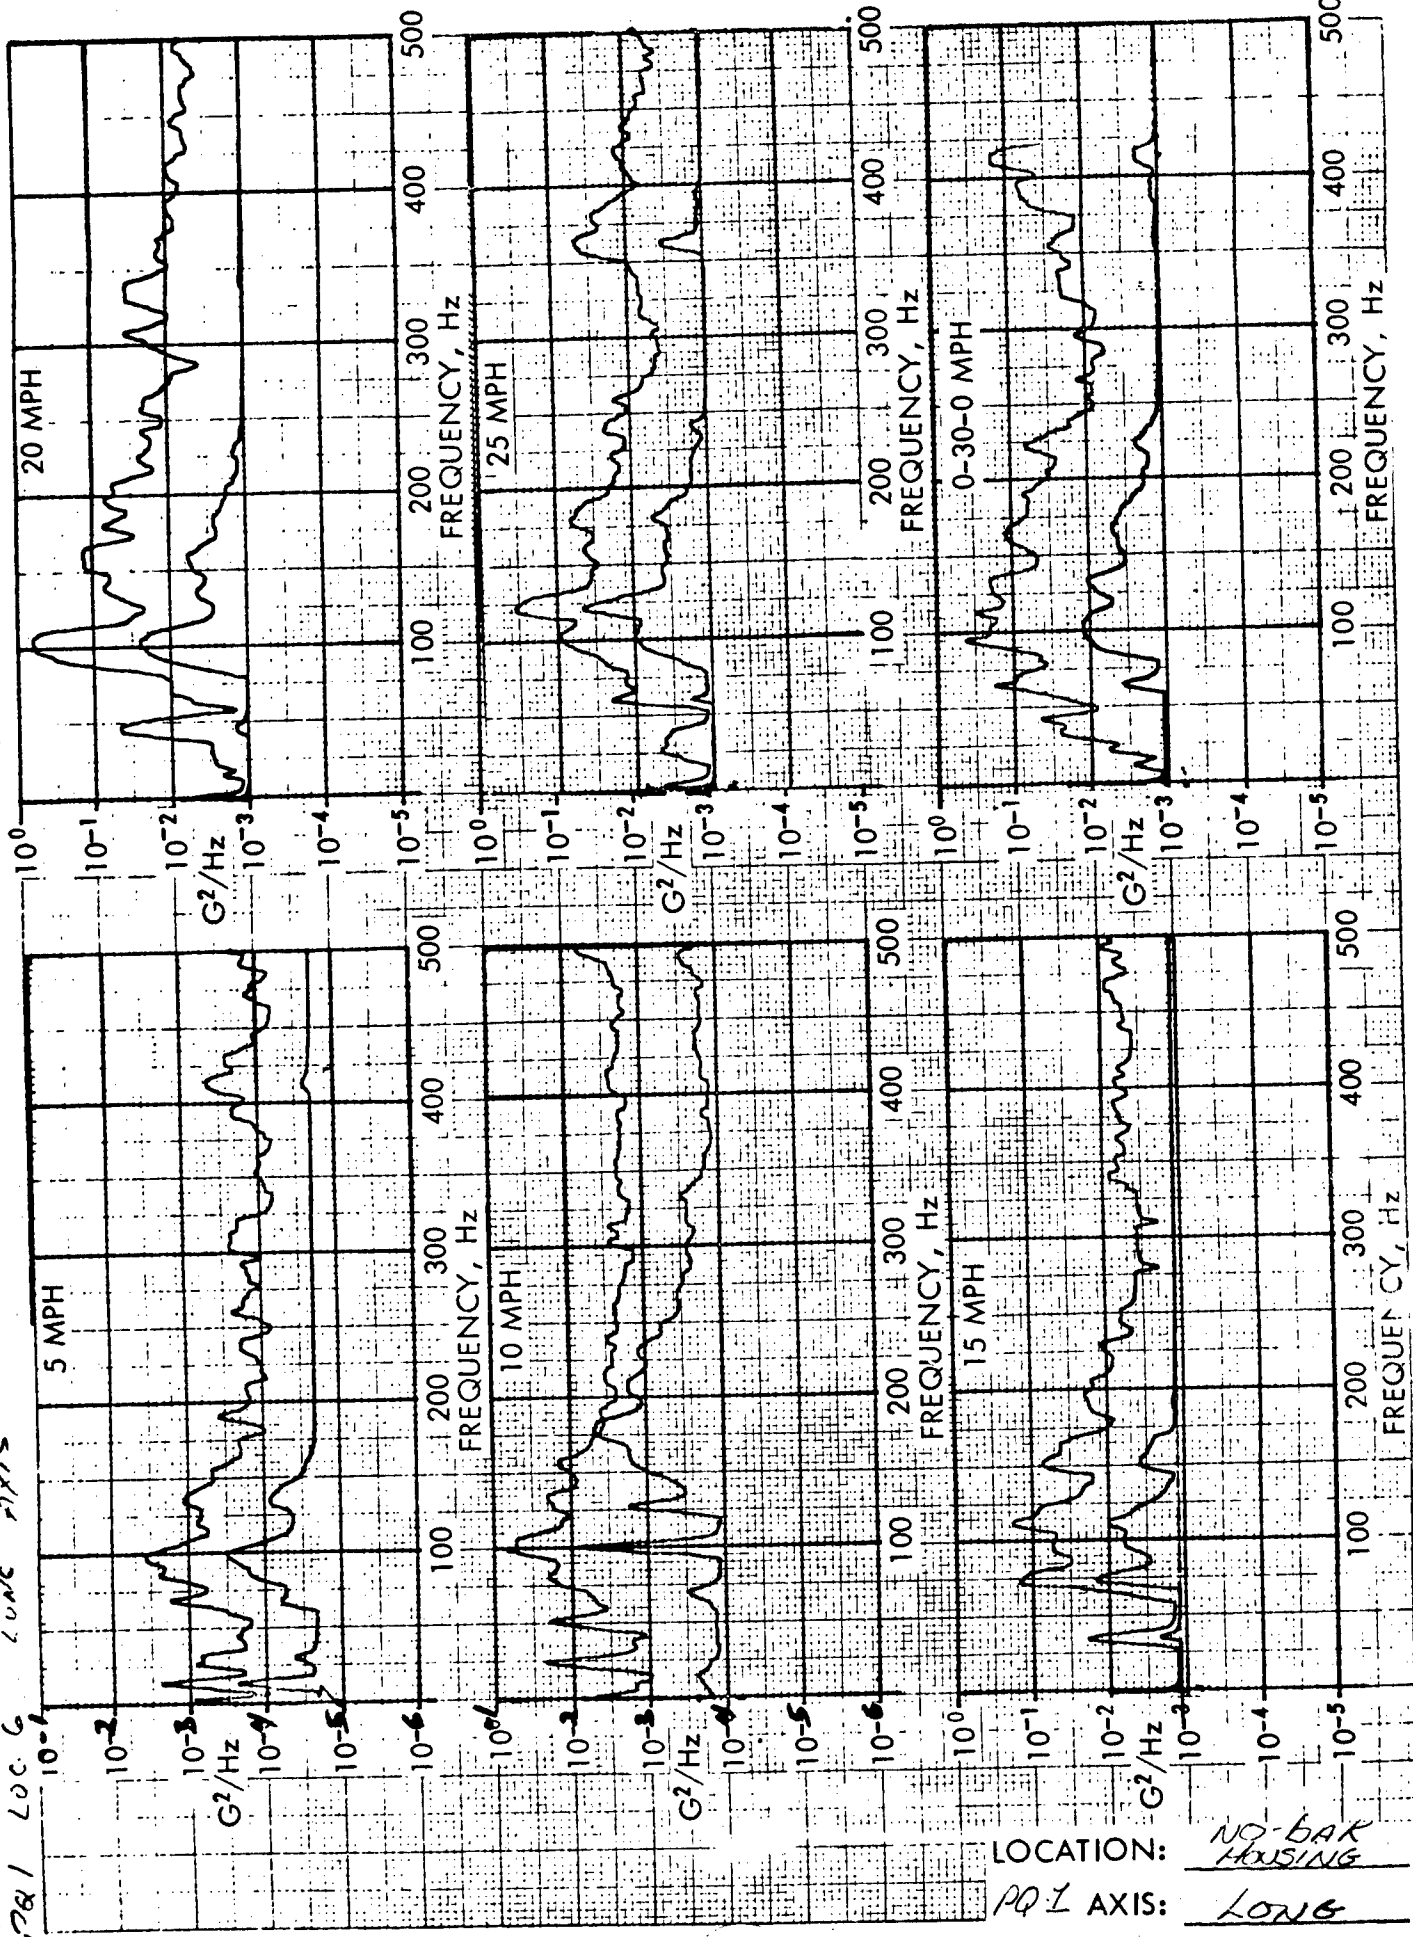 LOC 6 LONG AXIS
5 MPH
10-1
10-2
10-3
10-4
10-5
10-6
G²/Hz
100 200 300 400 500
FREQUENCY, Hz
10 MPH
10-2
10-3
10-4
10-5
10-6
G²/Hz
100 200 300 400 500
FREQUENCY, Hz
15 MPH
10⁰
10-1
10-2
10-3
10-4
10-5
G²/Hz
100 200 300 400 500
FREQUENCY, Hz
20 MPH
10⁰
10-1
10-2
10-3
10-4
10-5
G²/Hz
100 200 300 400 500
FREQUENCY, Hz
25 MPH
10⁰
10-1
10-2
10-3
10-4
10-5
G²/Hz
100 200 300 400 500
FREQUENCY, Hz
0-30-0 MPH
10⁰
10-1
10-2
10-3
10-4
10-5
G²/Hz
100 200 300 400 500
FREQUENCY, Hz
LOCATION: NO-BAK
HOUSING
PQ1 AXIS: LONG